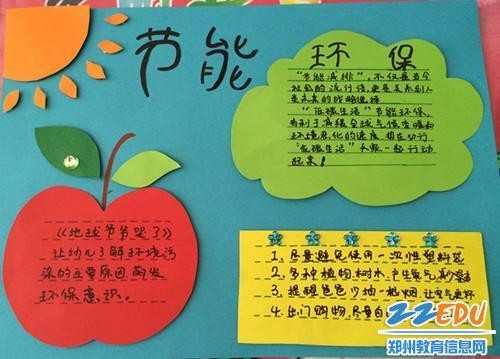 节能
环保
"节能减排",不仅是当今
社会的流行语,更是关系到人
类未来的战略选择
"低碳生活"节能环保,
有利于减缓全球气候变暖和
环境恶化的速度 势在必行
"低碳生活"大家一起行动
起来!
《地球爷爷哭了》
让幼儿了解环境污
染的主要原因 萌发
环保意识。
1、尽量避免使用一次性塑料袋
2、多种植物、树木,产生氧气,减少
3、提醒爸爸少抽一根烟,让空气更
4、出门购物,尽量自
ZZEDU
郑州教育信息网